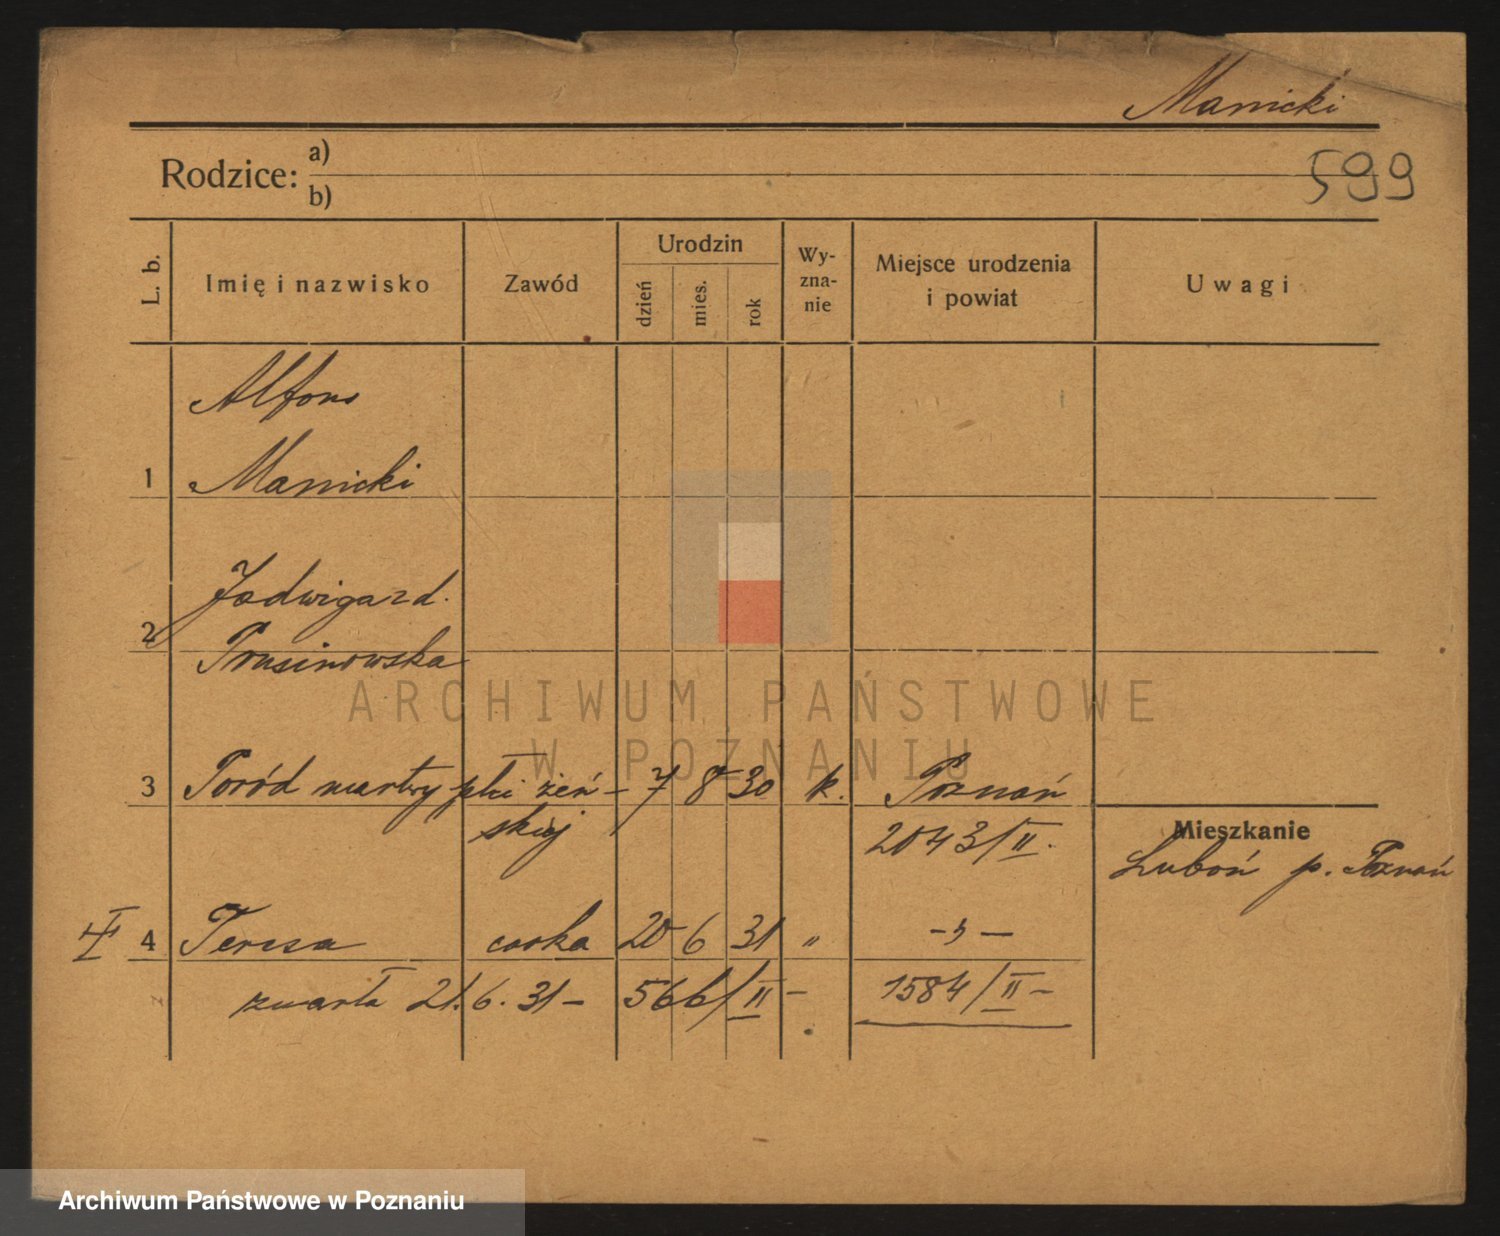 Manicki
Rodzice: a)
b)
599
L. b.
Imię i nazwisko
Zawód
Urodzin
dzień
mies.
rok
Wy-
zna-
nie
Miejsce urodzenia
i powiat
Uwagi
Alfons
1 Manicki
Jadwiga zd.
2 Prusinowska
ARCHIWUM PAŃSTWOWE
W POZNANIU
3 Poród martwy płci żeń- 7 8 30 k. Poznań
skiej
2043/II.
Mieszkanie
Luboń p. Poznań
4 Teresa corka 20 6 31 " -"-
zmarła 21.6.31- 566/II- 1584/II-
Archiwum Państwowe w Poznaniu